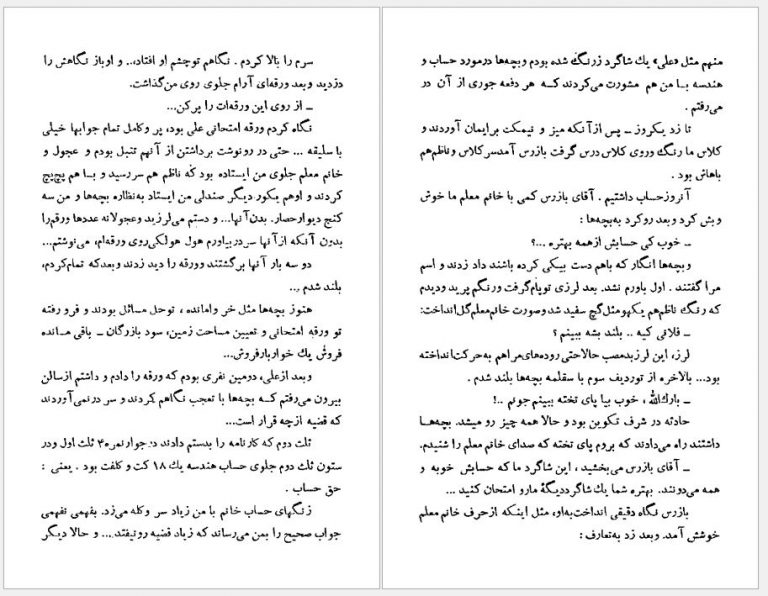 منهم مثل «علی» یك شاگرد زرنگ شده بودم و بچه‌ها درمورد حساب و
هندسه بـا من هم مشورت می‌کردند کـه هر دفعه جوری از آن در
می‌رفتم .
تا زد یکروز ــ پس از آنکه میز و نیمکت برایمان آوردند و
کلاس ما رنگ وروی کلاس درس گرفت بازرس آمدسر کلاس و ناظم هم
باهاش بود .
آنروز حساب داشتیم . آقای بازرس کمی با خانم معلم ما خوش
وبش کرد و بعد رو کرد به‌بچه‌ها :
ــ خوب کی حسابش از همه بهتره ...؟
و بچه‌ها انگار که باهم دست بیکی کرده باشند داد زدند و اسم
مرا گفتند . اول باورم نشد. بعد لرزی توپام گرفت ورنگم پرید ودیدم
که رنگ ناظم هم یکهو مثل گچ سفید شد وصورت خانم معلم گل انداخت:
ــ فلانی کیه .. بلند بشه ببینم ؟
لرز، این لرز بدمصب حالا حتی روده‌های مرا هم به حرکت انداخته
بود... بالاخره از توردیف سوم با سقلمه بچه‌ها بلند شدم .
ــ بارك‌الله ، خوب بیا پای تخته ببینم جونم ..!
حادثه در شرف تکوین بود و حالا همه چیز رو میشد. بچه‌هـا
داشتند راه می‌دادند که بروم پای تخته که صدای خانم معلم را شنیدم.
ــ آقای بازرس می‌بخشید ، این شاگرد ما که حسابش خوبه و
همه می‌دونند. بهتره شما یك شاگرد دیگهٔ مارو امتحان کنید ...
بازرس نگاه دقیقی انداخت به‌او، مثل اینکه از حرف خانم معلم
خوشش آمد. وبعد زد به‌تعارف :
سرم را بالا کردم . نگاهم توچشم او افتاد... و اوباز نگاهش را
دزدید و بعد ورقه‌ای آرام جلوی روی من گذاشت.
ــ از روی این ورقه‌ات را پر کن...
نگاه کردم ورقه امتحانی علی بود، پر وکامل تمام جوابها خیلی
با سلیقه ... حتی در رونوشت برداشتن از آنهم تنبل بودم و عجول و
خانم معلم جلوی من ایستاده بود که ناظم هم سر رسید و با هم پچ‌پچ
کردند و اوهم یکور دیگر صندلی من ایستاد به‌نظاره بچه‌ها و من سه
کنج دیوار حصار. بدن آنها... و دستم می‌لرزید وعجولانه عددها ورقم را
بدون آنکه از آنها سر دربیاورم هول هولکی روی ورقه‌ام، می‌نوشتم...
دو سه بار آنها برگشتند وورقه را دید زدند وبعد که تمام کردم،
بلند شدم ...
هنوز بچه‌ها مثل خر وامانده ، توحل مسائل بودند و فرو رفته
تو ورقه امتحانی و تعیین مساحت زمین، سود بازرگان ــ باقی مـانده
فروش یك خواربارفروش...
و بعد از علی، دومین نفری بودم که ورقه را دادم و داشتم از سالن
بیرون می‌رفتم کـه بچه‌ها با تعجب نگاهم کردند و سر در نمی‌آوردند
که قضیه از چه قرار است...
ثلث دوم که کارنامه را بدستم دادند در جوار نمره ۴ ثلث اول ودر
ستون ثلث دوم جلوی حساب هندسه یك ۱۸ کت و کلفت بود . یعنی :
حق حساب .
زنگهای حساب خانم با من زیاد سر وکله می‌زد. بفهمی نفهمی
جواب صحیح را بمن می‌رساند که زیاد قضیه رو نیفتد ... و حالا دیگر